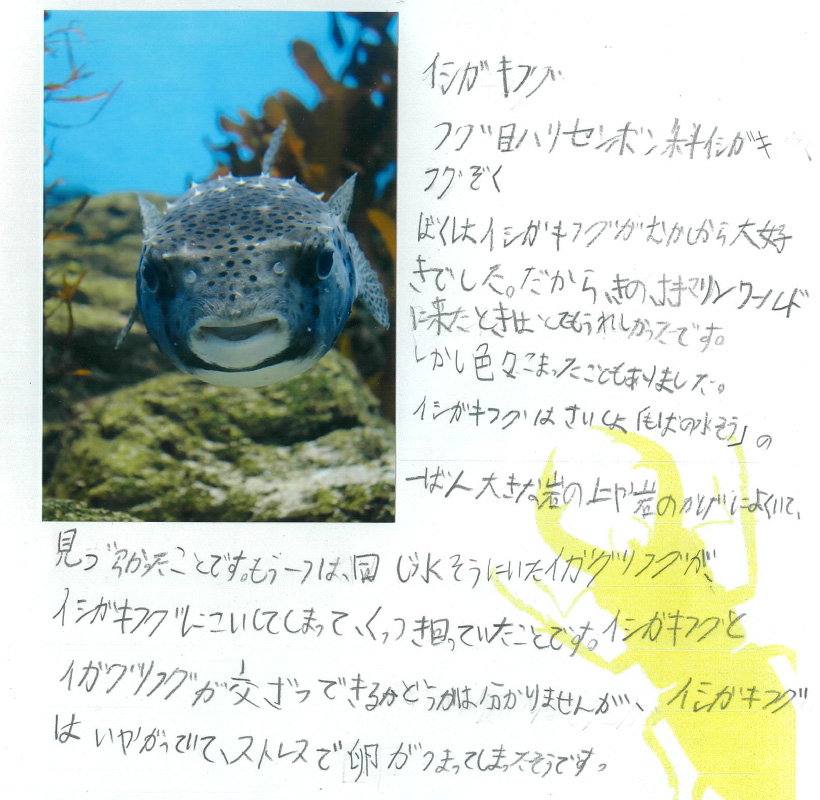 イシガキフグ
フグ目ハリセンボン科イシガキ
フグぞく
ぼくはイシガキフグがむかしから大好
きでした。だから、きの、マリンワールド
に来たときはとてもうれしかったです。
しかし色々こまったこともありました。
イシガキフグはさいしょ「もばの水そう」の
一ばん大きな岩の上や岩のかげによくいて、
見づらかったことです。もう一つは、同じ水そうにいたイガグリフグが、
イシガキフグにこいしてしまって、くっつき回っていたことです。イシガキフグと
イガグリフグが交ざつできるかどうかは分かりませんが、イシガキフグ
はいやがっていて、ストレスで卵がつまってしまったそうです。